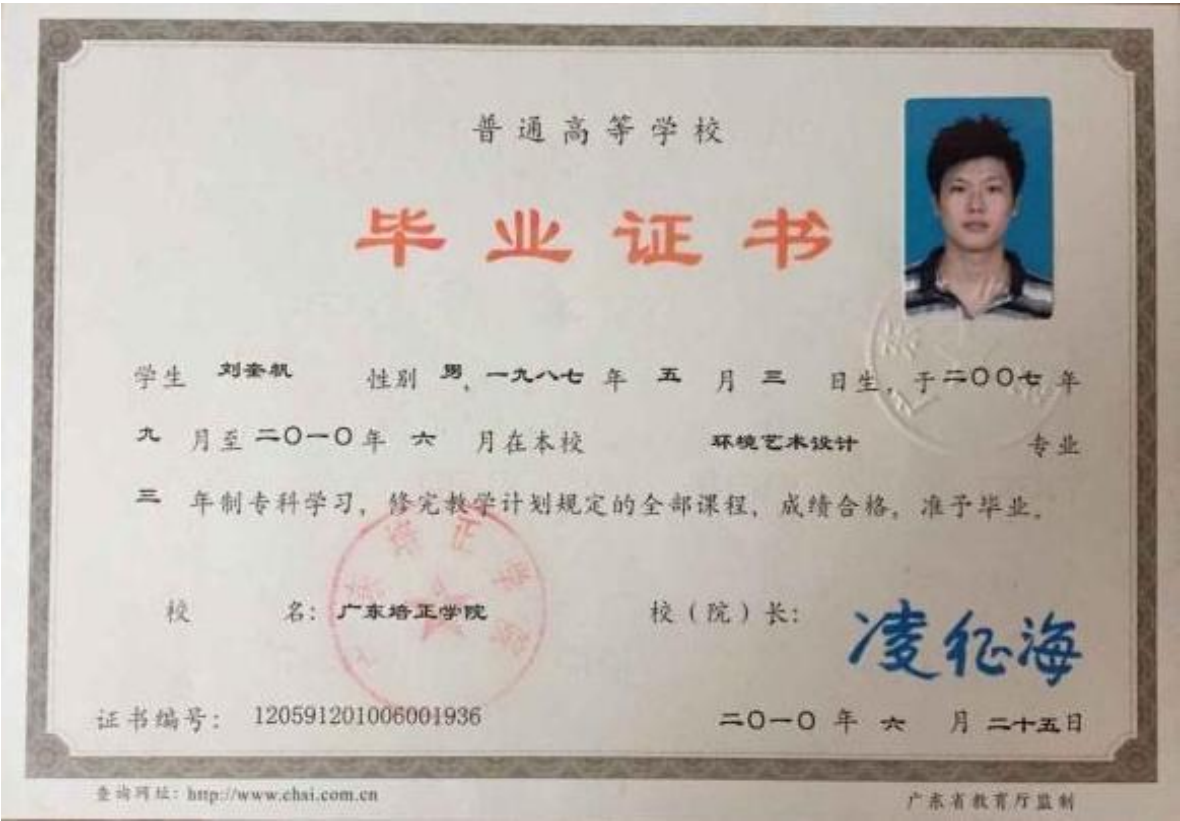 普通高等学校
毕业证书
学生 刘奎帆 性别 男，一九八七 年 五 月 三 日生，于二〇〇七 年
九 月至 二〇一〇 年 六 月在本校 环境艺术设计 专业
三 年制专科学习，修完教学计划规定的全部课程，成绩合格，准予毕业。
校 名：广东培正学院 校（院）长：凌征海
证书编号：120591201006001936 二〇一〇 年 六 月 二十五日
查询网址：http://www.chsi.com.cn 广东省教育厅监制